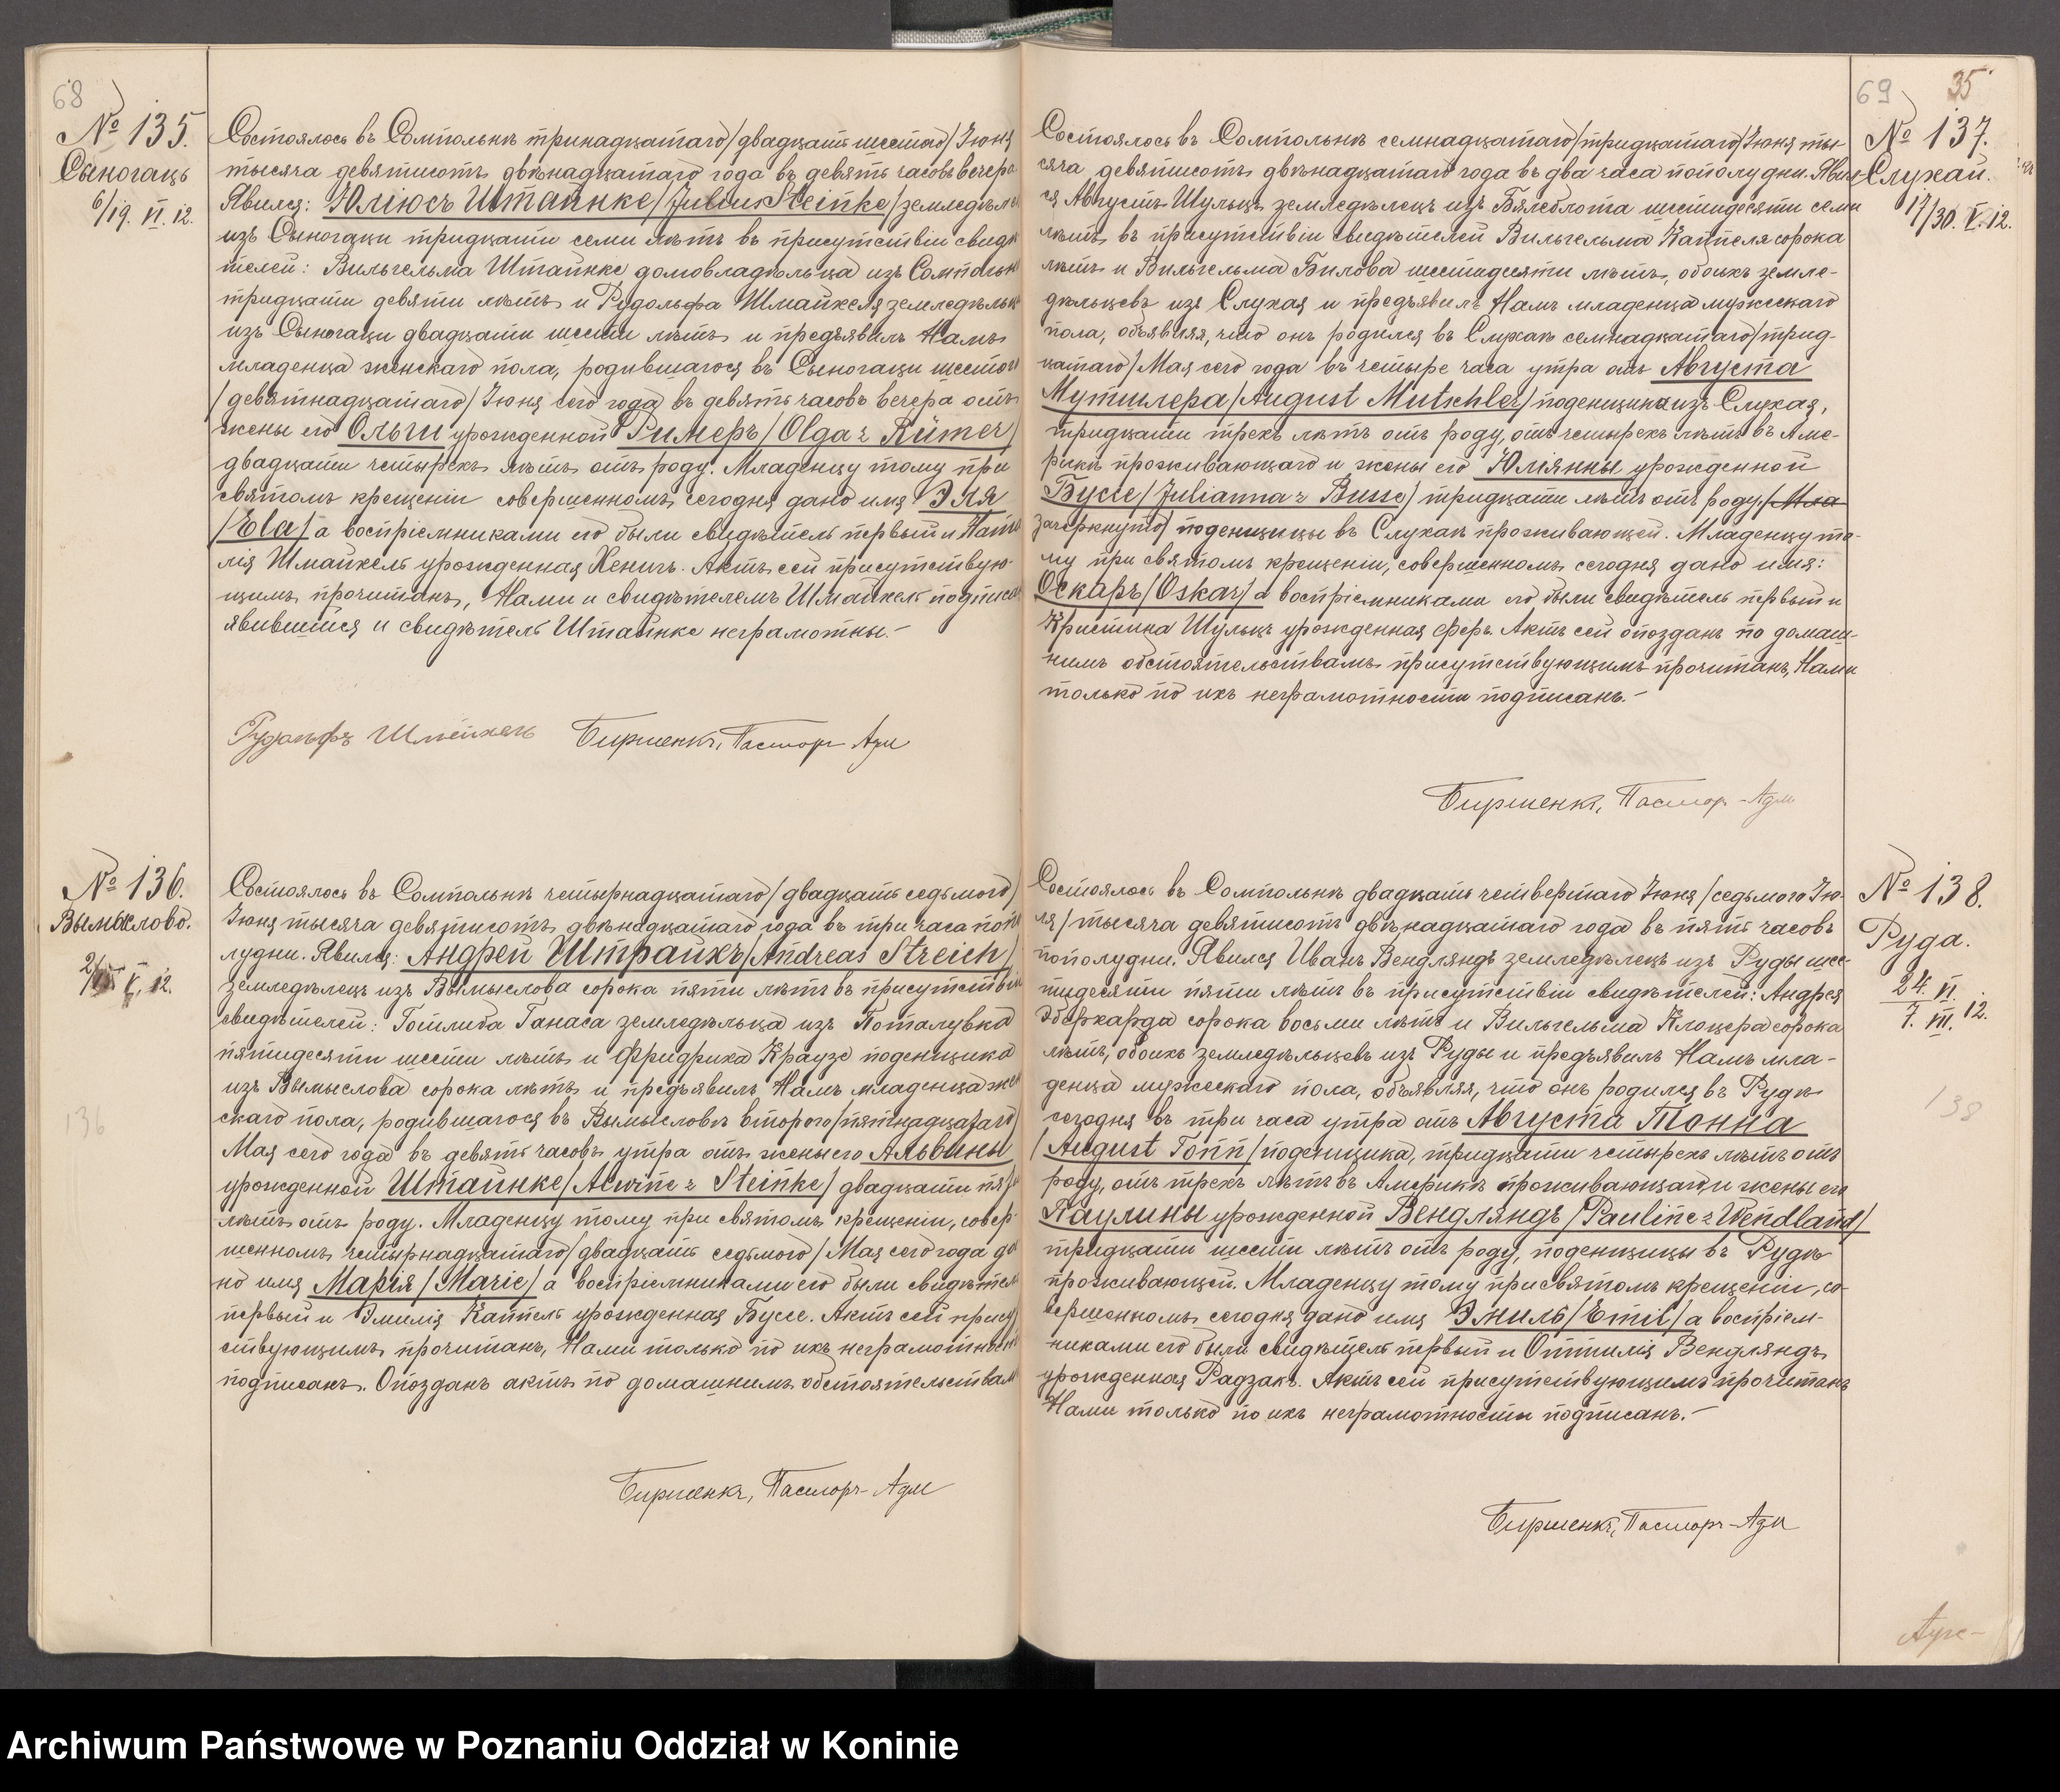 68
№ 135.
Сыногаць
6/19. VI. 12.
Состоялось въ Сомпольнѣ тринадцатаго/двадцать шестого/Іюня
тысяча девятисотъ двѣнадцатаго года въ девять часовъ вечера
Явился: Юліюсъ Штайнке/Julius Steinke/земледѣле
изъ Сыногаци тридцати семи лѣтъ въ присутствіи свидѣ
телей: Вильгельма Штайнке домовладѣльца изъ Сомпольн
тридцати девяти лѣтъ и Рудольфа Шмайхеля земледѣльц
изъ Сыногаци двадцати шести лѣтъ и предъявилъ Намъ
младенца женскаго пола, родившагося въ Сыногаци шесто
/девятнадцатаго/Іюня сего года въ девять часовъ вечера отъ
жены его Ольги урожденной Римеръ/Olga z Rümer/
двадцати четырехъ лѣтъ отъ роду. Младенцу тому при
святомъ крещеніи совершенномъ сегодня дано имя Эля
/Ela/а воспріемниками его были свидѣтель первый и Ната
лія Шмайхель урожденная Кенигъ. Актъ сей присутствую-
щимъ прочитанъ, Нами и свидѣтелемъ Шмайхель подписа
явившійся и свидѣтель Штайнке неграмотны.-
Рудольфъ Шмейхель Биршенкъ, Пасторъ Адм
№ 136.
Вымыслово.
2/15 V. 12.
136
Состоялось въ Сомпольнѣ четырнадцатаго/двадцать седьмого/
Іюня тысяча девятисотъ двѣнадцатаго года въ три часа попо
лудни. Явился: Андрей Штрайхъ/Andreas Streich/
земледѣлецъ изъ Вымыслова сорока пяти лѣтъ въ присутствіи
свидѣтелей: Готлиба Ганаса земледѣльца изъ Поталувка
пятидесяти шести лѣтъ и Фридриха Краузе поденщика
изъ Вымыслова сорока лѣтъ и предъявилъ Намъ младенца жен
скаго пола, родившагося въ Вымысловѣ второго/пятнадцатаго
Мая сего года въ девять часовъ утра отъ жены его Альвины
урожденной Штайнке/Alwine z Steinke/двадцати пя
лѣтъ отъ роду. Младенцу тому при святомъ крещеніи, совер
шенномъ четырнадцатаго/двадцать седьмого/Мая сего года да
но имя Марія/Marie/а воспріемниками его были свидѣтель
первый и Эмилія Каппель урожденная Буссе. Актъ сей присут
ствующимъ прочитанъ, Нами только по ихъ неграмотности
подписанъ. Опозданъ актъ по домашнимъ обстоятельствам
Биршенкъ, Пасторъ-Адм
69 35
№ 137.
Слухай.
17/30. V. 12.
Состоялось въ Сомпольнѣ семнадцатаго/тридцатаго/Іюня ты-
сяча девятисотъ двѣнадцатаго года въ два часа пополудни. Явил-
ся Августъ Шульцъ земледѣлецъ изъ Бялеблота шестидесяти семи
лѣтъ, въ присутствіи свидѣтелей Вильгельма Каппеля сорока
лѣтъ и Вильгельма Билова шестидесяти лѣтъ, обоихъ земле-
дѣльцевъ изъ Слухая и предъявилъ Намъ младенца мужескаго
пола, объявляя, что онъ родился въ Слухаѣ семнадцатаго/трид-
цатаго/Мая сего года въ четыре часа утра отъ Августа
Мутшлера/August Mutschler/поденщика изъ Слухая,
тридцати трехъ лѣтъ отъ роду, отъ четырехъ лѣтъ въ Аме-
рикѣ проживающаго и жены его Юліянны урожденной
Буссе/Julianna z Busse/тридцати лѣтъ отъ роду,/Мла
зачеркнуто/поденщицы въ Слухаѣ проживающей. Младенцу то-
му при святомъ крещеніи, совершенномъ сегодня дано имя:
Оскаръ/Oskar/а воспріемниками его были свидѣтель первый и
Кристина Шульцъ урожденная Феръ. Актъ сей опозданъ по домаш-
нимъ обстоятельствамъ присутствующимъ прочитанъ, Нами
только по ихъ неграмотности подписанъ.-
Биршенкъ, Пасторъ-Адм
№ 138.
Руда.
24. VI.
7. VII. 12.
138
Состоялось въ Сомпольнѣ двадцать четвертаго Іюня/седьмого Ію-
ля/тысяча девятисотъ двѣнадцатаго года въ пять часовъ
пополудни. Явился Иванъ Вендляндъ земледѣлецъ изъ Руды шес-
тидесяти пяти лѣтъ въ присутствіи свидѣтелей: Андрея
Эберхарда сорока восьми лѣтъ и Вильгельма Клоцера сорока
лѣтъ, обоихъ земледѣльцевъ изъ Руды и предъявилъ Намъ мла-
денца мужескаго пола, объявляя, что онъ родился въ Рудѣ
сегодня въ три часа утра отъ Августа Тонна
/August Tonn/поденщика, тридцати четырехъ лѣтъ отъ
роду, отъ трехъ лѣтъ въ Америкѣ проживающаго, и жены его
Паулины урожденной Вендляндъ/Pauline z Wendland/
тридцати шести лѣтъ отъ роду, поденщицы въ Рудѣ
проживающей. Младенцу тому при святомъ крещеніи, со-
вершенномъ сегодня дано имя Эмиль/Emil/а воспріем-
никами его были свидѣтель первый и Оттилія Вендляндъ
урожденная Радзакъ. Актъ сей присутствующимъ прочитанъ
Нами только по ихъ неграмотности подписанъ.-
Биршенкъ, Пасторъ-Адм
Archiwum Państwowe w Poznaniu Oddział w Koninie